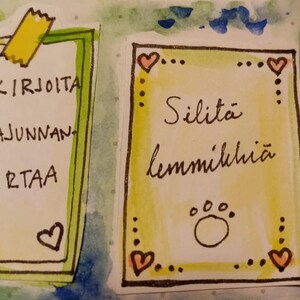 KIRJOITA
AJUNNAN-
RTAA
Silitä
lemmikkiä